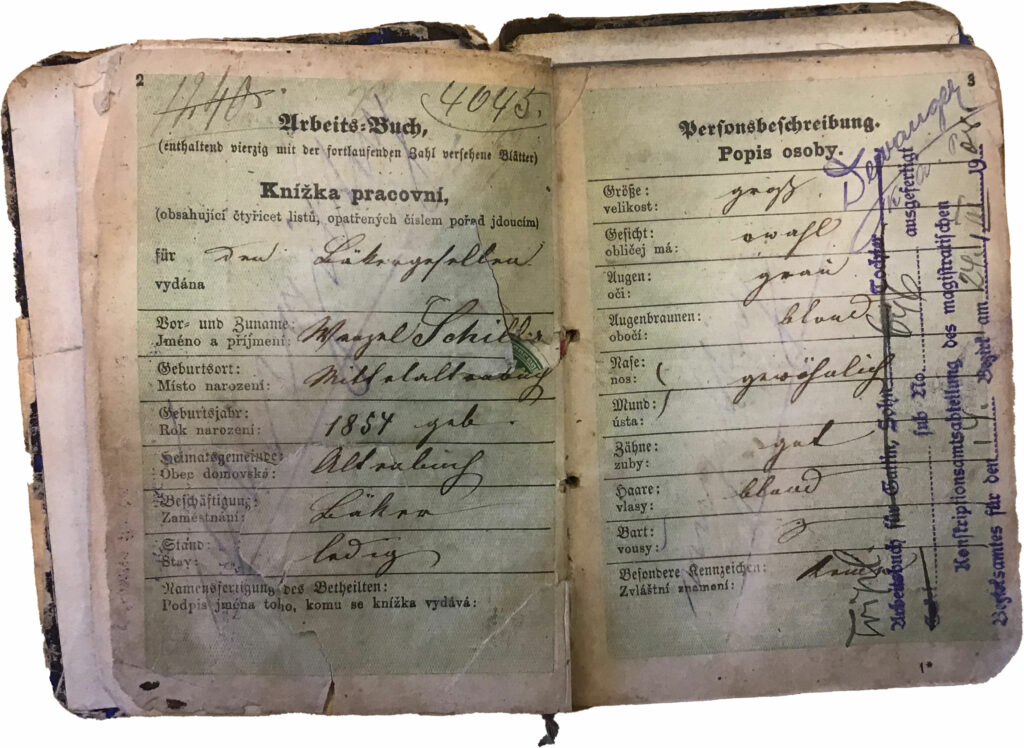 2
1240.
4045.
Arbeits-Buch,
(enthaltend vierzig mit der fortlaufenden Zahl versehene Blätter)
Knížka pracovní,
(obsahující čtyřicet listů, opatřených číslem pořad jdoucím)
für den Bäkergesellen
vydána
Vor- und Zuname: Wenzel Schilder
Jméno a příjmení:
Geburtsort: Mittelaltenbuch
Místo narození:
Geburtsjahr: 1854 geb.
Rok narození:
Heimatsgemeinde: Altenbuch
Obec domovská:
Beschäftigung: Bäker
Zaměstnání:
Stand: ledig
Stav:
Namensfertigung des Betheilten:
Podpis jména toho, komu se knížka vydává:
3
Personsbeschreibung.
Popis osoby.
Größe: groß
velikost:
Gesicht: owahl
obličej má:
Augen: grau
oči:
Augenbraunen: blond
obočí:
Nase: gewöhnlich
nos:
Mund:
ústa:
Zähne: gut
zuby:
Haare: blond
vlasy:
Bart:
vousy:
Besondere Kennzeichen: keine
Zvláštní znamení:
1*
Arbeitsbuch für Gattin, Sohn, Tochter
sub No. ausgefertigt
Konskriptionsamtsabteilung des magistratischen
Bezirksamtes für den Bezirk am 19